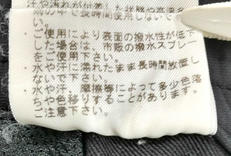 汗や濡れが付いた状態や高温多
湿の中で長時間使用しないで
ご使用により表面の撥水性が低下
した場合は、市販の撥水スプレー
をご使用下さい。
水や汗に濡れたまま長時間放置し
ないで下さい。
水や汗、摩擦等によって多少色落
ちや色移りすることがあります。
ご注意下さい。